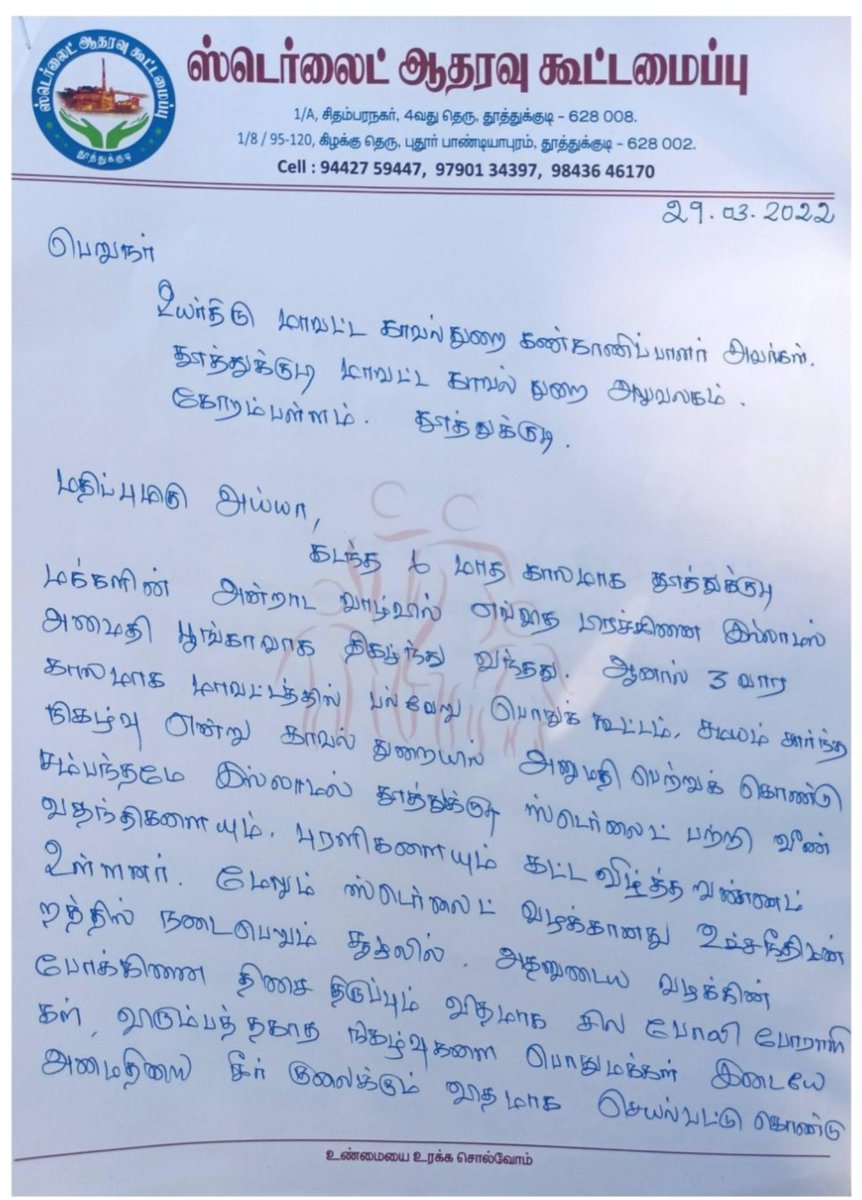 ஸ்டெர்லைட் ஆதரவு கூட்டமைப்பு
தூத்துக்குடி
ஸ்டெர்லைட் ஆதரவு கூட்டமைப்பு
1/A, சிதம்பரநகர், 4வது தெரு, தூத்துக்குடி – 628 008.
1/8 / 95-120, கிழக்கு தெரு, புதூர் பாண்டியாபுரம், தூத்துக்குடி – 628 002.
Cell : 94427 59447, 97901 34397, 98436 46170
29.03.2022
பெறுநர்
உயர்திரு மாவட்ட காவல்துறை கண்காணிப்பாளர் அவர்கள்.
தூத்துக்குடி மாவட்ட காவல் துறை அலுவலகம்.
கோரம்பள்ளம். தூத்துக்குடி.
மதிப்புமிகு அய்யா,
கடந்த 6 மாத காலமாக தூத்துக்குடி
மக்களின் அன்றாட வாழ்வில் எவ்வித பிரச்சினை இல்லாமல்
அமைதி பூங்காவாக திகழ்ந்து வந்தது. ஆனால் 3 வார
காலமாக மாவட்டத்தில் பல்வேறு பொதுக் கூட்டம், சமயம் சார்ந்த
நிகழ்வு என்று காவல் துறையில் அனுமதி பெற்றுக் கொண்டு
சம்பந்தமே இல்லாமல் தூத்துக்குடி ஸ்டெர்லைட் பற்றி வீண்
வதந்திகளையும், புரளிகளையும் கட்டவிழ்த்த வண்ணம்
உள்ளனர். மேலும் ஸ்டெர்லைட் வழக்கானது உச்சநீதிமன்
றத்தில் நடைபெறும் சூழலில், அதனுடைய வழக்கின்
போக்கினை திசை திருப்பும் விதமாக சில போலி போராளி
கள், விரும்பத்தகாத நிகழ்வுகளை பொதுமக்கள் இடையே
அமைதியை சீர் குலைக்கும் விதமாக செயல்பட்டு கொண்டு
உண்மையை உரக்க சொல்வோம்